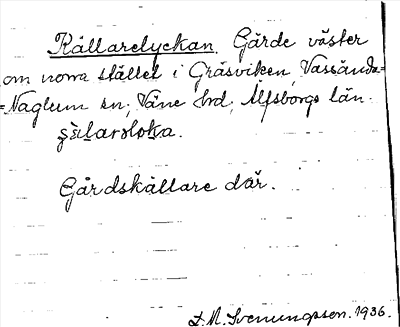 Källarelyckan. Gärde väster
om norra stället i Gräsviken, Vassända-
=Naglum sn; Väne hrd, Älfsborgs län.

Gårdskällare där.
S. M. Svenungsson. 1936.